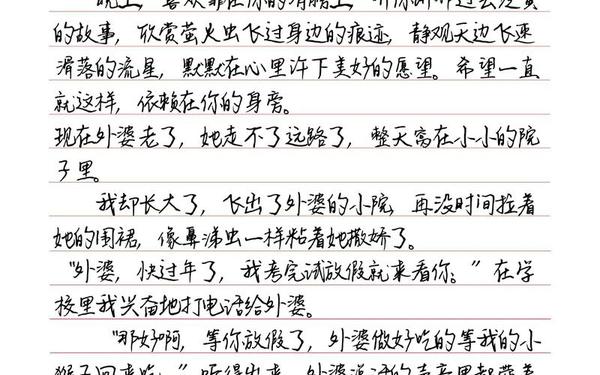 晚上，喜欢靠在你的肩膀上，听你讲那过去经典
的故事，欣赏萤火虫飞过身边的痕迹，静观天边飞逝
滑落的流星，默默在心里许下美好的愿望。希望一直
就这样，依赖在你的身旁。
现在外婆老了，她走不了远路了，整天窝在小小的院
子里。
我却长大了，飞出了外婆的小院，再没时间拉着
她的围裙，像鼻涕虫一样粘着她撒娇了。
“外婆，快过年了，我考完试放假就来看你。”在学
校里我兴奋地打电话给外婆。
“那好啊，等你放假了，外婆做好吃的等我的小
猴子回来吃。”听得出来，外婆说话的声音里都带着